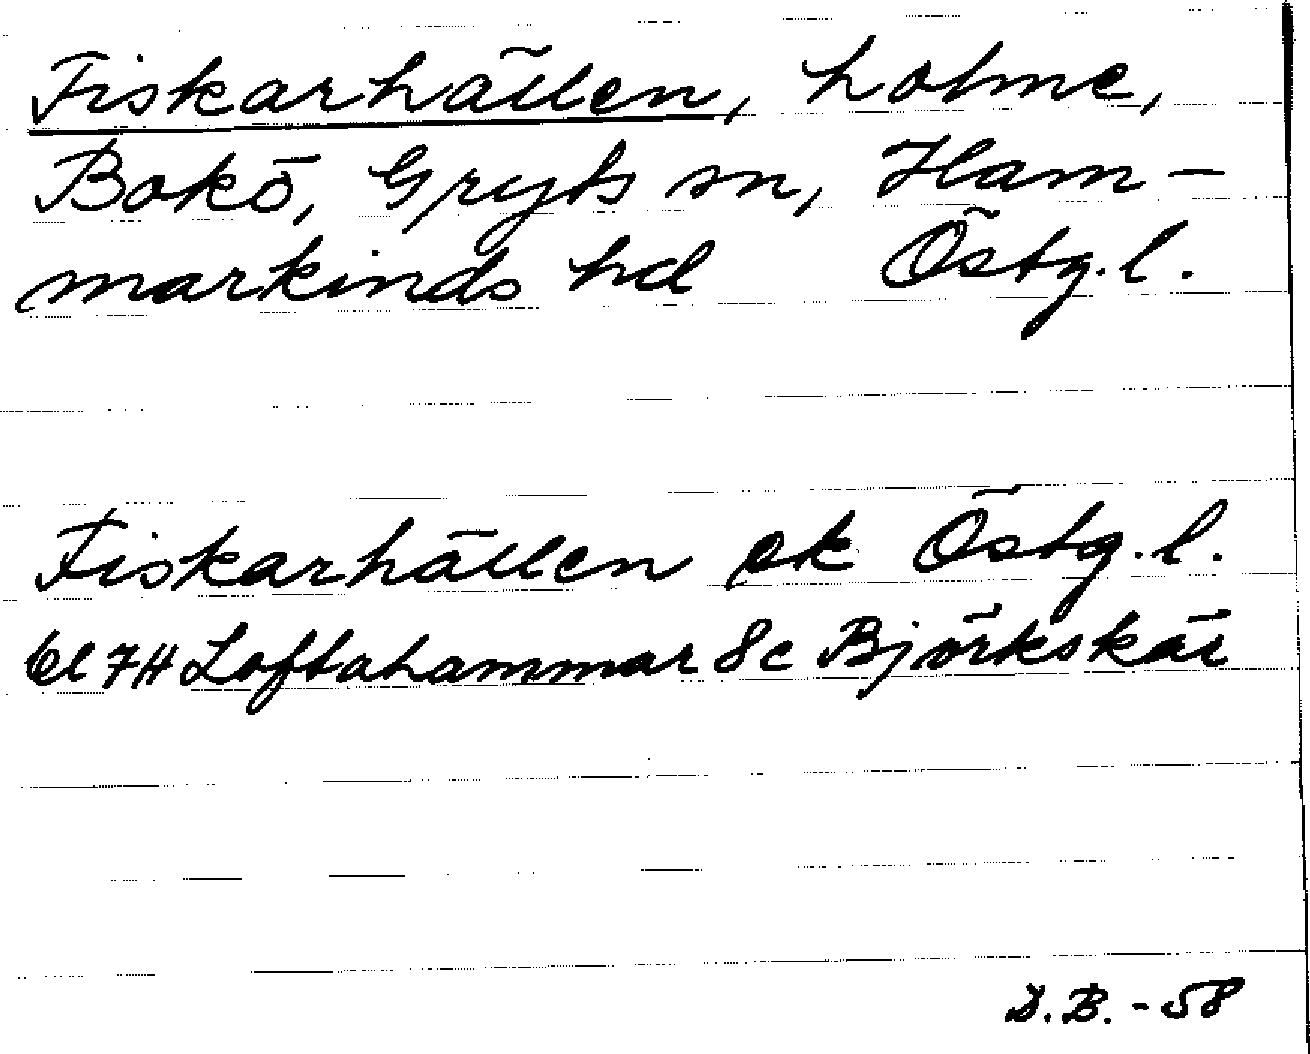 Fiskarhällen, holme,
Bokö, Gryts sn, Ham-
markinds hd Östg. l.
Fiskarhällen ek Östg. l.
bl 7H Loftahammar 8c Björkskär
D.B. -58